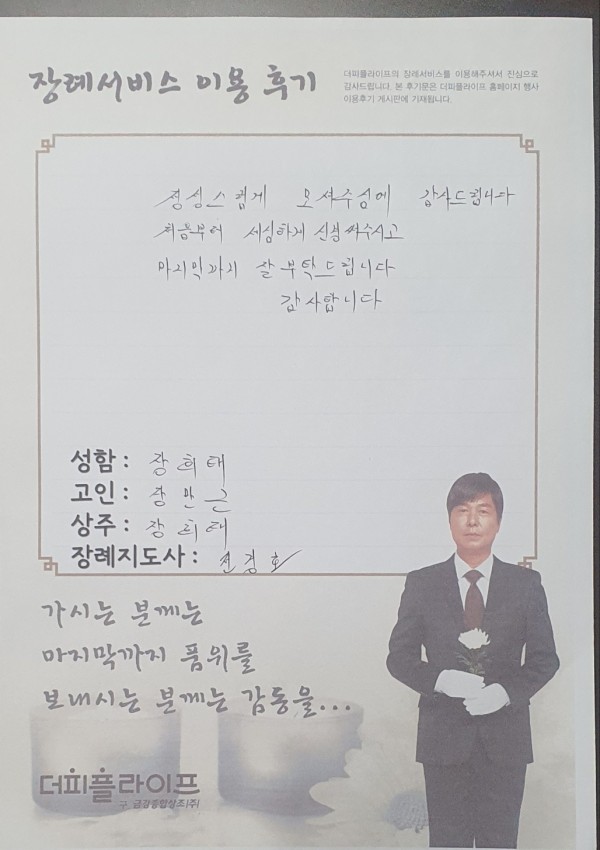 장례서비스 이용 후기
더피플라이프의 장례서비스를 이용해주셔서 진심으로
감사드립니다. 본 후기문은 더피플라이프 홈페이지 행사
이용후기 게시판에 기재됩니다.
정성스럽게 모셔주심에 감사드립니다
처음부터 세심하게 신경써주시고
마지막까지 잘 부탁드립니다
감사합니다
성함 : 장희태
고인 : 장만근
상주 : 장희태
장례지도사 : 전경호
가시는 분께는
마지막까지 품위를
보내시는 분께는 감동을...
더피플라이프
구. 금강종합상조(주)